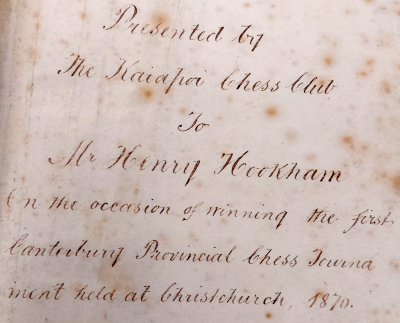 Presented by
The Kaiapoi Chess Club
To
Mr Henry Hookham
On the occasion of winning the first
Canterbury Provincial Chess Tourna
ment held at Christchurch, 1870.